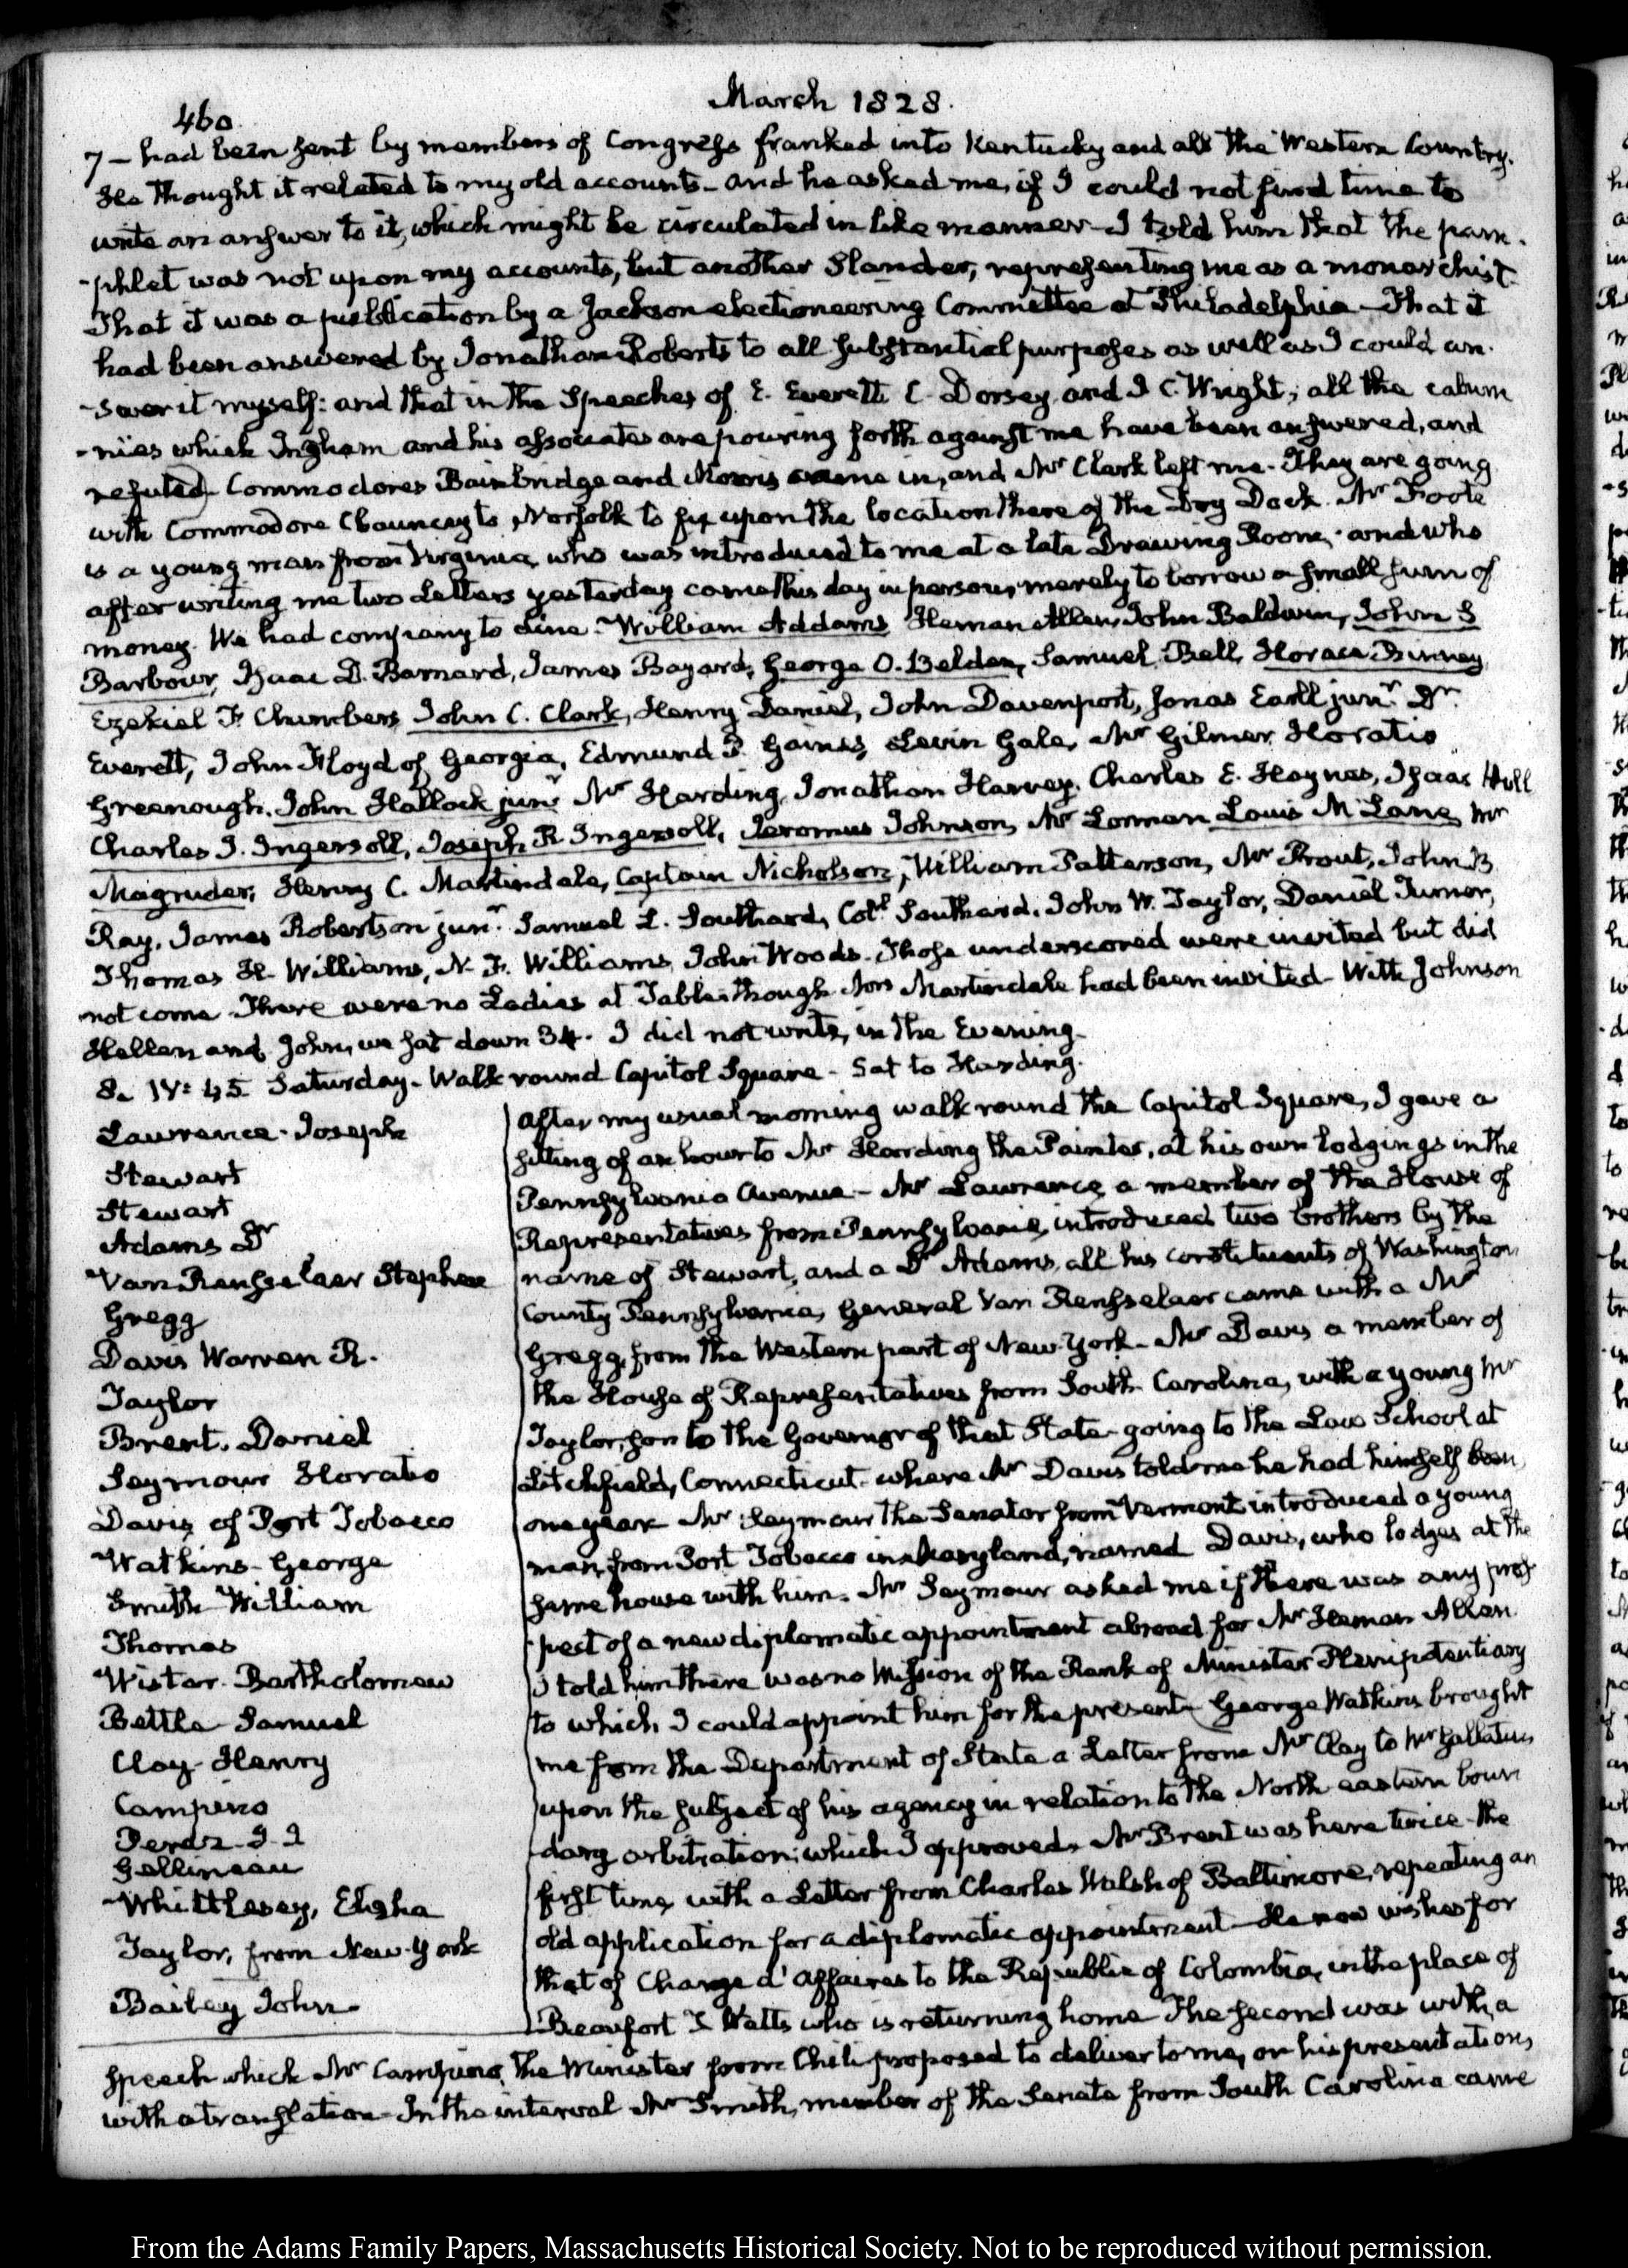 460
March 1828.
7 – had been sent by members of Congress franked into Kentucky and all the Western Country.
He thought it related to my old accounts – and he asked me, if I could not find time to
write an answer to it, which might be circulated in like manner – I told him that the pam-
-phlet was not upon my accounts, but another Slander, representing me as a monarchist
That it was a publication by a Jackson electioneering Committee at Philadelphia – That it
had been answered by Jonathan Roberts to all substantial purposes as well as I could an-
-swer it myself: and that in the Speeches of E. Everett C. Dorsey and J C. Wright, all the calum
-nies which Ingham and his associates are pouring forth against me have been answered, and
refuted – Commodores Bainbridge and Morris came in, and Mr Clark left me – They are going
with Commodore Chauncey to Norfolk to fix upon the location there of the Dry Dock. Mr Foote
is a young man from Virginia, who was introduced to me at a late Drawing Room, and who
after writing me two Letters yesterday came this day in person, merely to borrow a small sum of
money. We had company to dine – William Addams Heman Allen, John Baldwin, John S
Barbour, Isaac D. Barnard, James Bayard, George O. Belden, Samuel Bell, Horace Binney
Ezekiel F. Chambers, John C. Clark, Henry Daniel, John Davenport, Jonas Earll junr. Dr
Everett, John Floyd of Georgia, Edmund P. Gaines, Levin Gale, Mr Gilmer, Horatio
Greenough, John Hallock junr Mr Harding, Jonathan Harvey, Charles E. Haynes, Isaac Hull
Charles J. Ingersoll, Joseph R Ingersoll, Jeromus Johnson, Mr Lorman Louis McLane, Mr
Magruder, Henry C. Martindale, Captain Nicholson, William Patterson, Mr Prout, John B
Ray, James Robertson junr. Samuel L. Southard, Coll Southard, John W. Taylor, Daniel Turner,
Thomas H. Williams, N. F. Williams, John Woods. Those underscored were invited but did
not come There were no Ladies at Table though Mrs Martindale had been invited – With Johnson
Hellen and John, we sat down 34. I did not write, in the Evening.
8. IV: 45 Saturday – Walk round Capitol Square – Sat to Harding.
Lawrence – Joseph
Stewart
Stewart
Adams Dr
Van Rensselaer Stephen
Gregg
Davis Warren R.
Taylor
Brent, Daniel
Seymour Horatio
Davis of Port Tobacco
Watkins – George
Smith William
Thomas
Wistar – Bartholomew
Bettle Samuel
Clay – Henry
Campino
Gallineau
Whittlesey, Elisha
Taylor, from New-York
Bailey John
After my usual morning walk round the Capitol Square, I gave a
sitting of an hour to Mr Harding the Painter, at his own lodgings in the
Pennsylvania Avenue – Mr Lawrence a member of the House of
Representatives from Pennsylvania, introduced two brothers by the
name of Stewart, and a Dr Adams, all his constituents of Washington
County Pennsylvania, General Van Rensselaer came with a Mr
Gregg, from the Western part of New-York – Mr Davis a member of
the House of Representatives from South Carolina, with a young Mr
Taylor, son to the Governor of that State going to the Law School at
Litchfield, Connecticut where Mr Davis told me he had himself been
one year Mr Seymour the Senator from Vermont introduced a young
man, from Port Tobacco in Maryland, named Davis, who lodges at the
same house with him. Mr Seymour asked me if there was any pros
-pect of a new diplomatic appointment abroad for Mr Heman Allen
I told him there was no Mission of the Rank of Minister Plenipotentiary
to which I could appoint him for the present – George Watkins brought
me from the Department of State a Letter from Mr Clay to Mr Gallatin
upon the subject of his agency in relation to the North eastern boun
-dary arbitration; which I approved. Mr Brent was here twice – the
first time, with a Letter from Charles Walsh of Baltimore, repeating an
old application for a diplomatic appointment – He now wishes for
that of Chargé d'Affaires to the Republic of Colombia, in the place of
Beaufort T Watts who is returning home The second was with a
speech which Mr Campino, the Minister from Chili proposed to deliver to me, on his presentation,
with a translation – In the interval Mr Smith, member of the Senate from South Carolina came
From the Adams Family Papers, Massachusetts Historical Society. Not to be reproduced without permission.